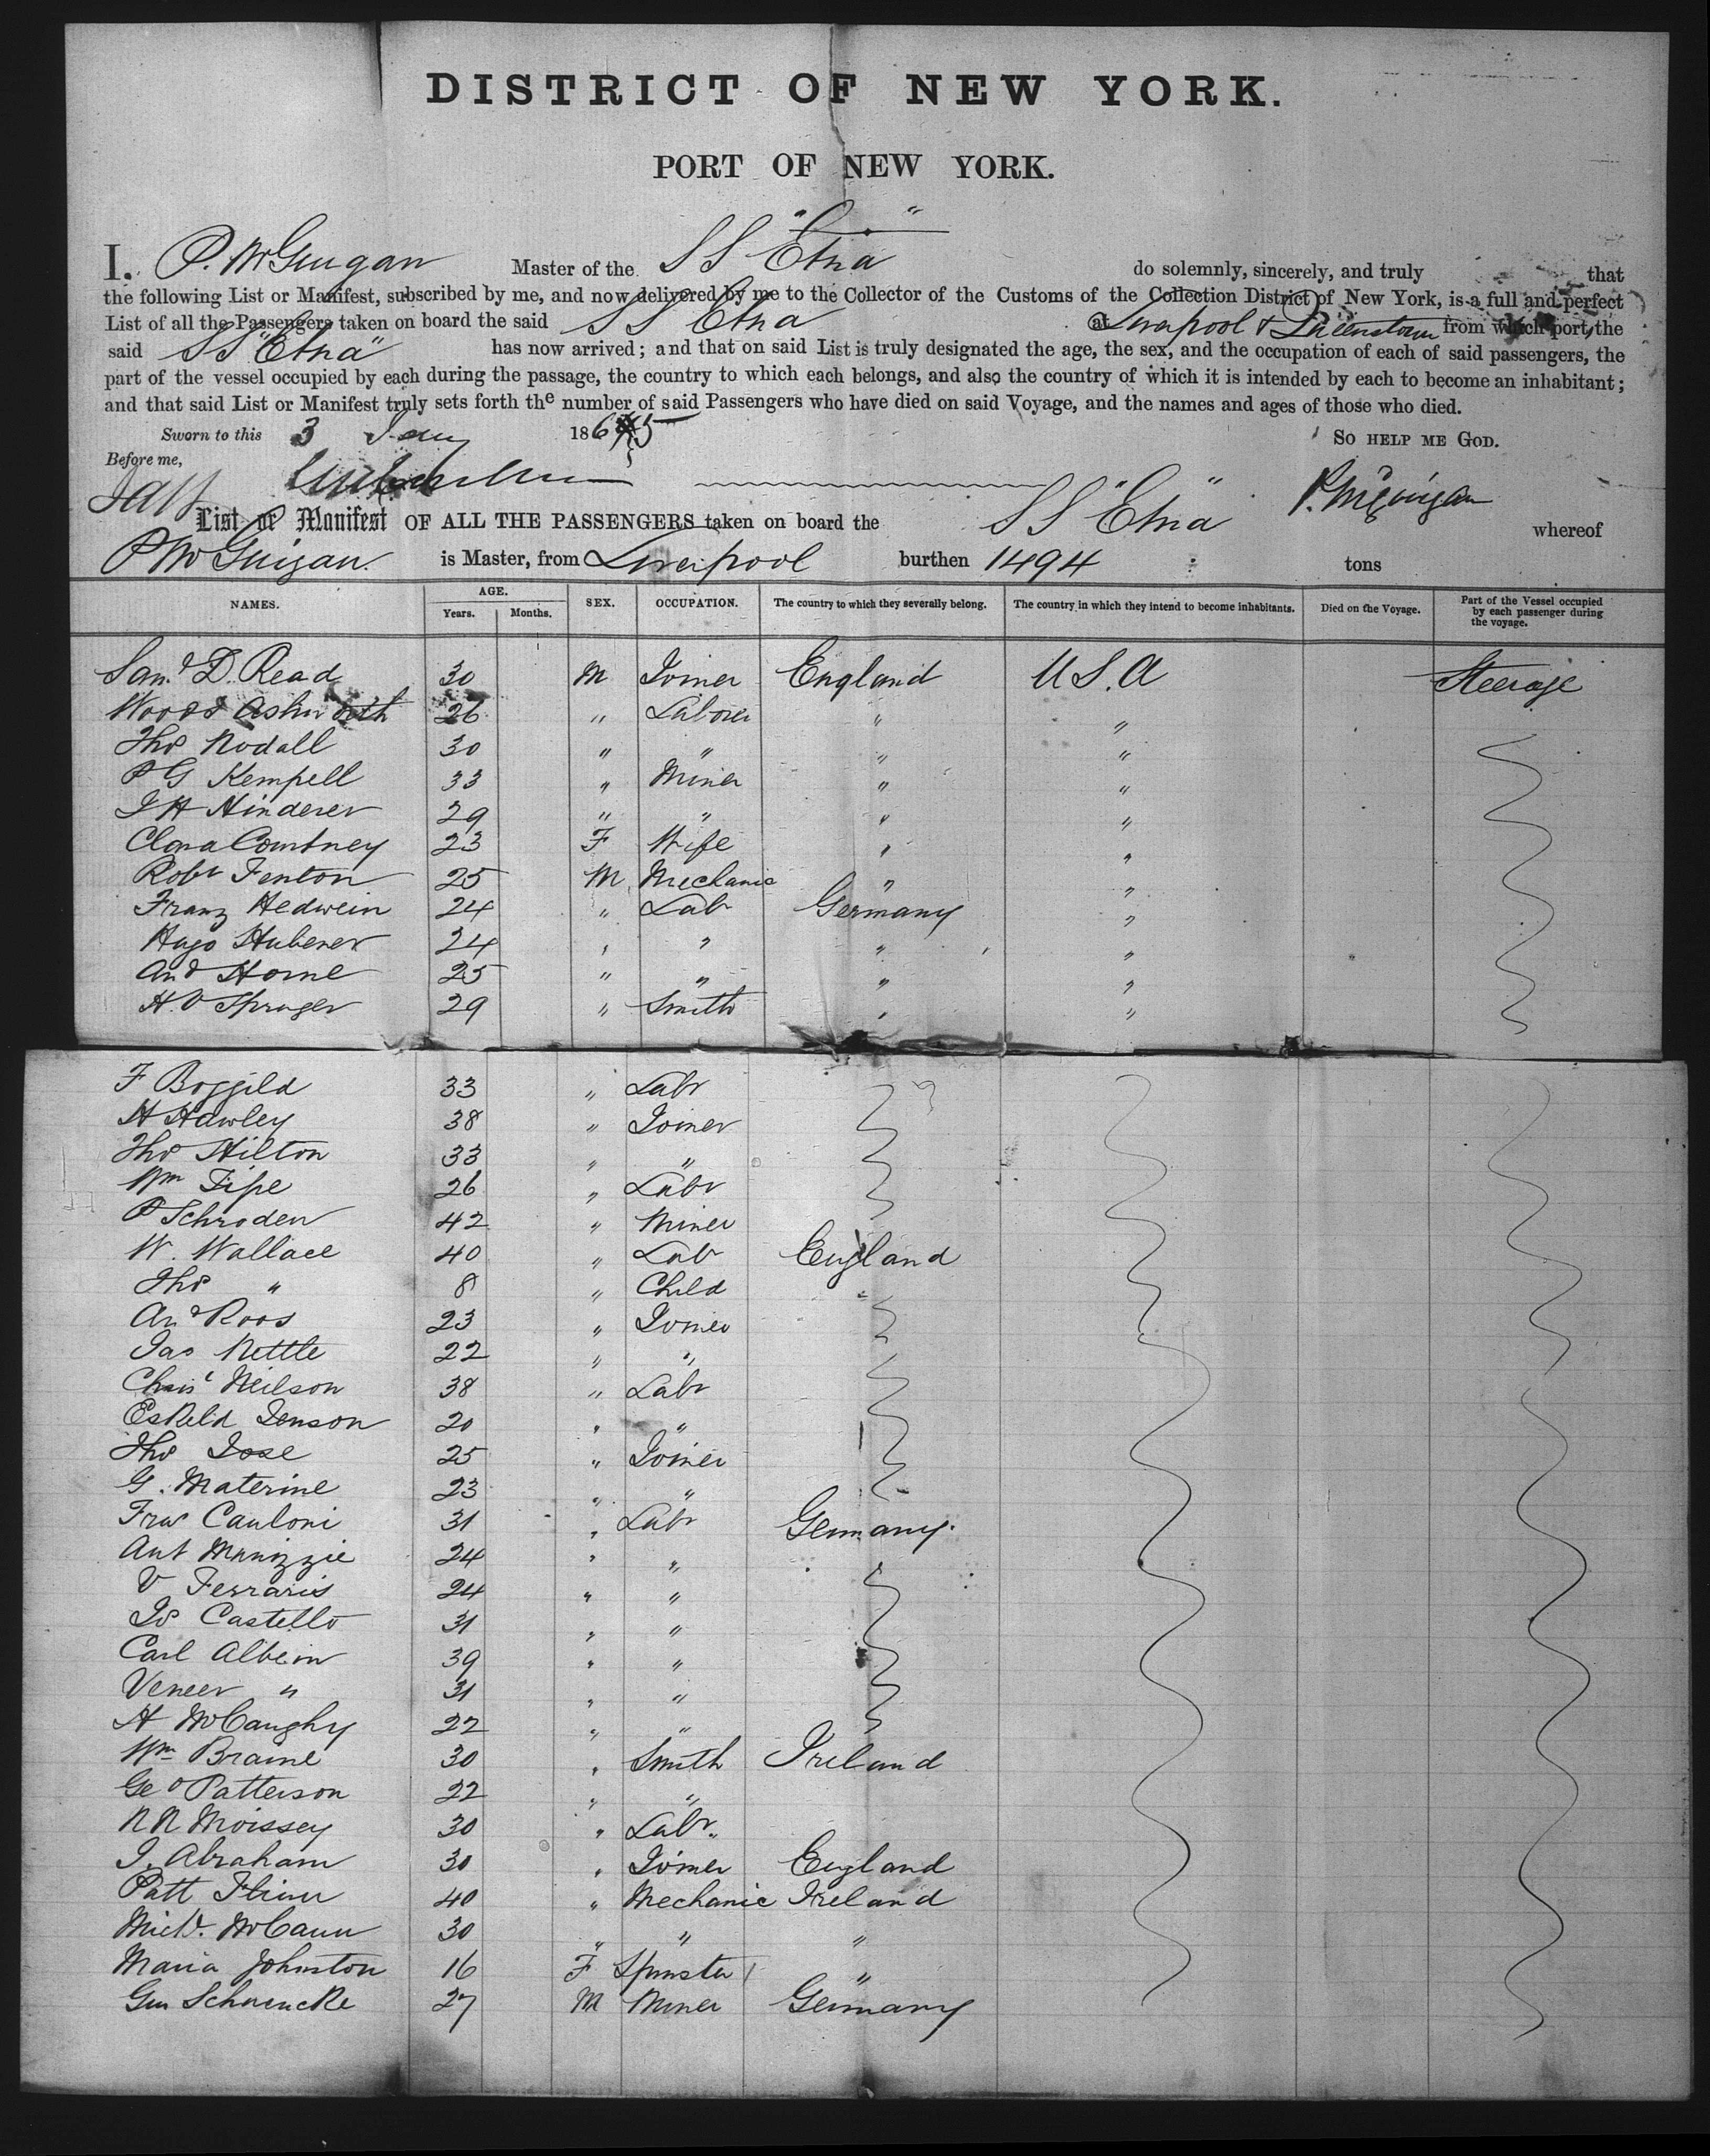 DISTRICT OF NEW YORK.
PORT OF NEW YORK.
I, P. McGuigan Master of the SS "Etna" do solemnly, sincerely, and truly that
the following List or Manifest, subscribed by me, and now delivered by me to the Collector of the Customs of the Collection District of New York, is a full and perfect
List of all the Passengers taken on board the said SS Etna at Liverpool & Queenstown from which port, the
said SS "Etna" has now arrived; and that on said List is truly designated the age, the sex, and the occupation of each of said passengers, the
part of the vessel occupied by each during the passage, the country to which each belongs, and also the country of which it is intended by each to become an inhabitant;
and that said List or Manifest truly sets forth the number of said Passengers who have died on said Voyage, and the names and ages of those who died.
Sworn to this 3 Jany 1865 SO HELP ME GOD.
Before me,
P. McGuigan
List or Manifest OF ALL THE PASSENGERS taken on board the SS "Etna" whereof
P McGuigan is Master, from Liverpool burthen 1494 tons
NAMES. AGE. Years. Months. SEX. OCCUPATION. The country to which they severally belong. The country in which they intend to become inhabitants. Died on the Voyage. Part of the Vessel occupied by each passenger during the voyage.
Saml D. Read 30 M Joiner England U S. A Steerage
Woods Ashworth 26 " Laborer " "
Thos Nodall 30 " " " "
P G Kempell 33 " Miner " "
J H Hinderer 29 " " " "
Clara Courtney 23 F Wife " "
Robt Fenton 25 M Mechanic " "
Franz Hedwein 24 " Labr Germany "
Hugo Hubener 24 " " " "
And Horne 25 " " " "
H. O Spruger 29 " Smith " "
F Boggild 33 " Labr
H Hawley 38 " Joiner
Thos Hilton 33 " "
Wm Fife 26 " Labr
P Schroden 42 " Miner
W. Wallace 40 " Labr England
Thos " 8 " Child "
And Roos 23 " Joiner
Jas Nettle 22 " "
Christ Neilson 38 " Labr
Eskeld Jenson 20 " "
Thos Jose 25 " Joiner
G. Materine 23 " "
Fras Cauloni 31 " Labr Germany.
Ant Munizzie 24 " "
V Ferraris 24 " "
Js Castello 31 " "
Carl Albein 39 " "
Veneer " 31 " "
H McCaughy 22 " "
Wm Braine 30 " Smith Ireland
Geo Patterson 22 " "
N N Moissey 30 " Labr.
J. Abraham 30 " Joiner England
Patt Flinn 40 " Mechanic Ireland
Michl. McCann 30 " " "
Maria Johnston 16 F Spinster "
Gus Schuencke 27 M Miner Germany